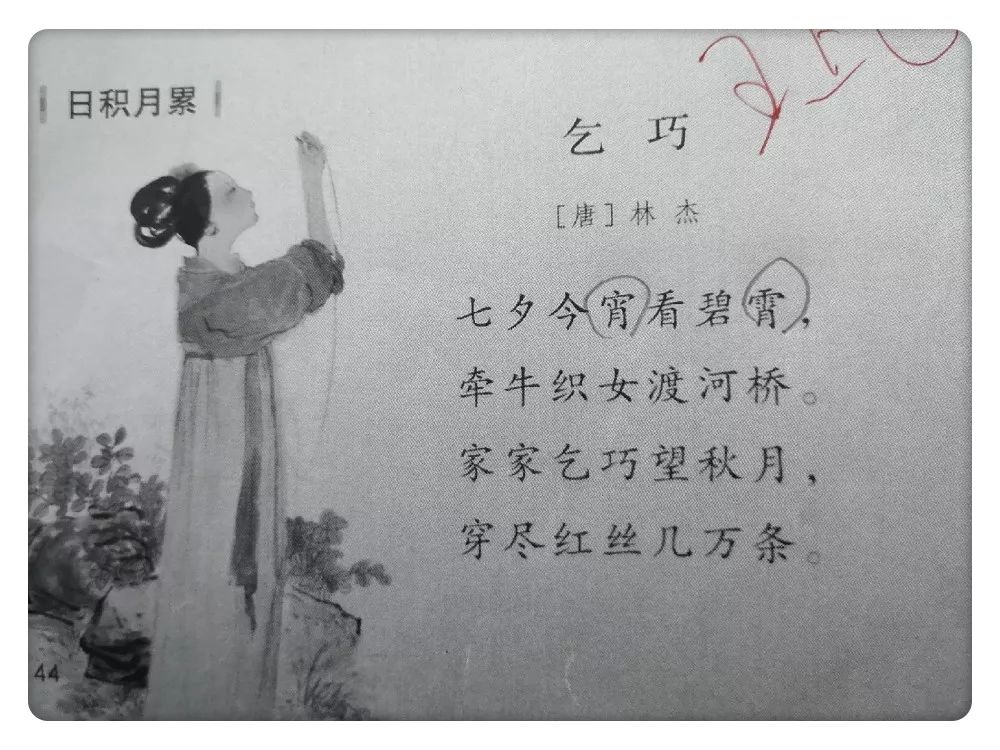 日积月累
乞巧
[唐]林杰
七夕今宵看碧霄，
牵牛织女渡河桥。
家家乞巧望秋月，
穿尽红丝几万条。
44